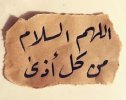 اللهم السلام
من كل أذى